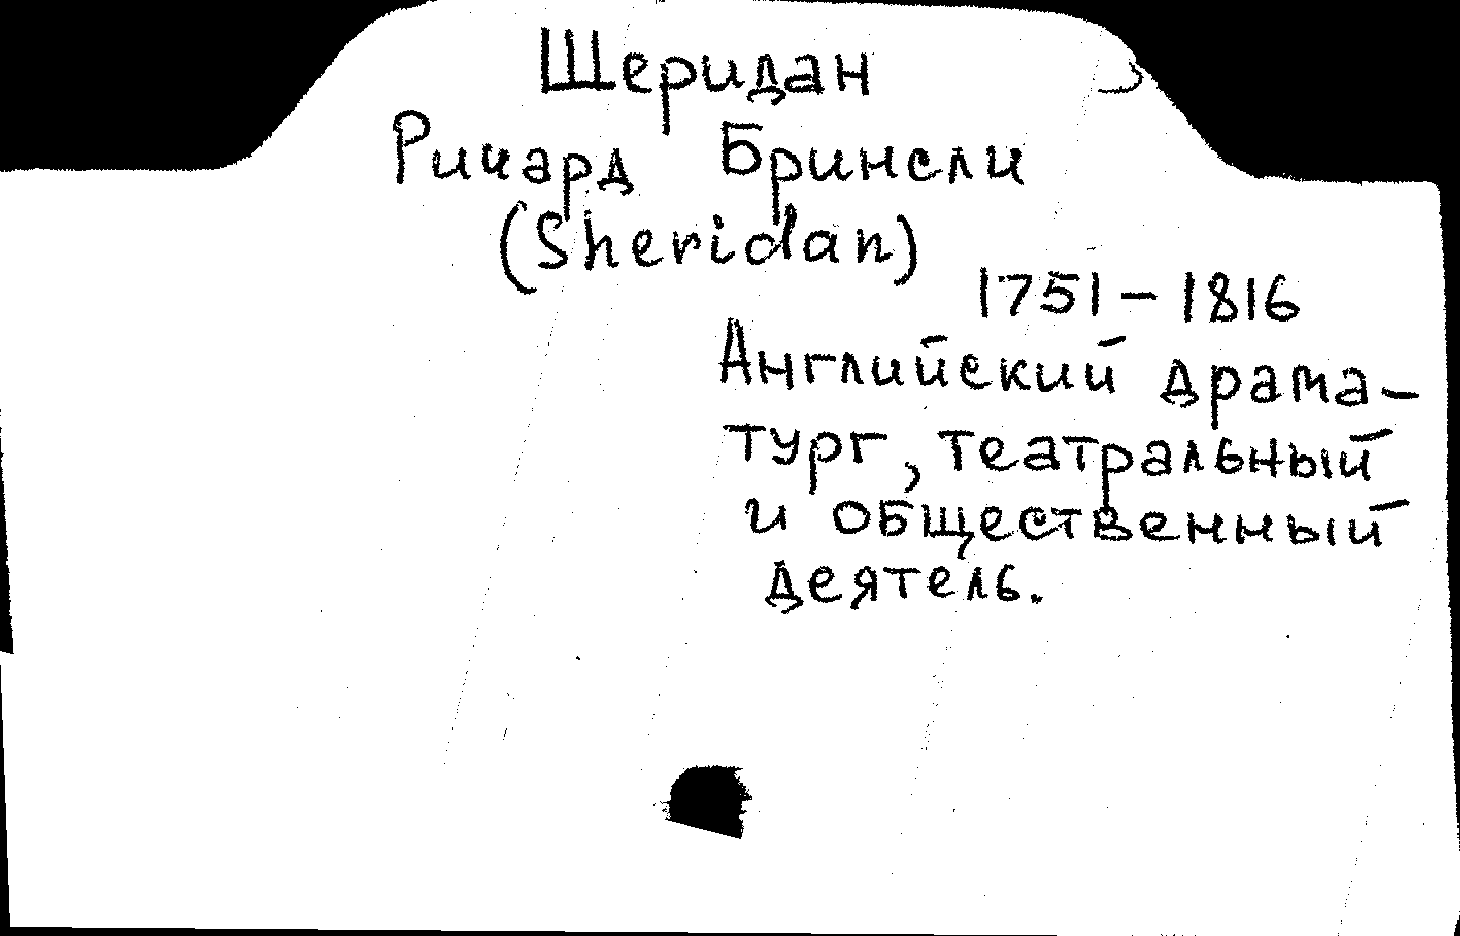 Шеридан
Ричард Бринсли
(Sheridan)
1751-1816
Английский драма-
тург, театральный
и общественный
деятель.